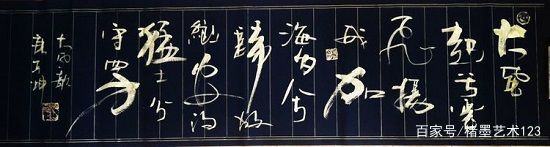 大風
起兮雲
飛揚
威加
海内兮
歸故
鄉安得
猛士兮
守四方
大風歌
百家号/楮墨艺术123